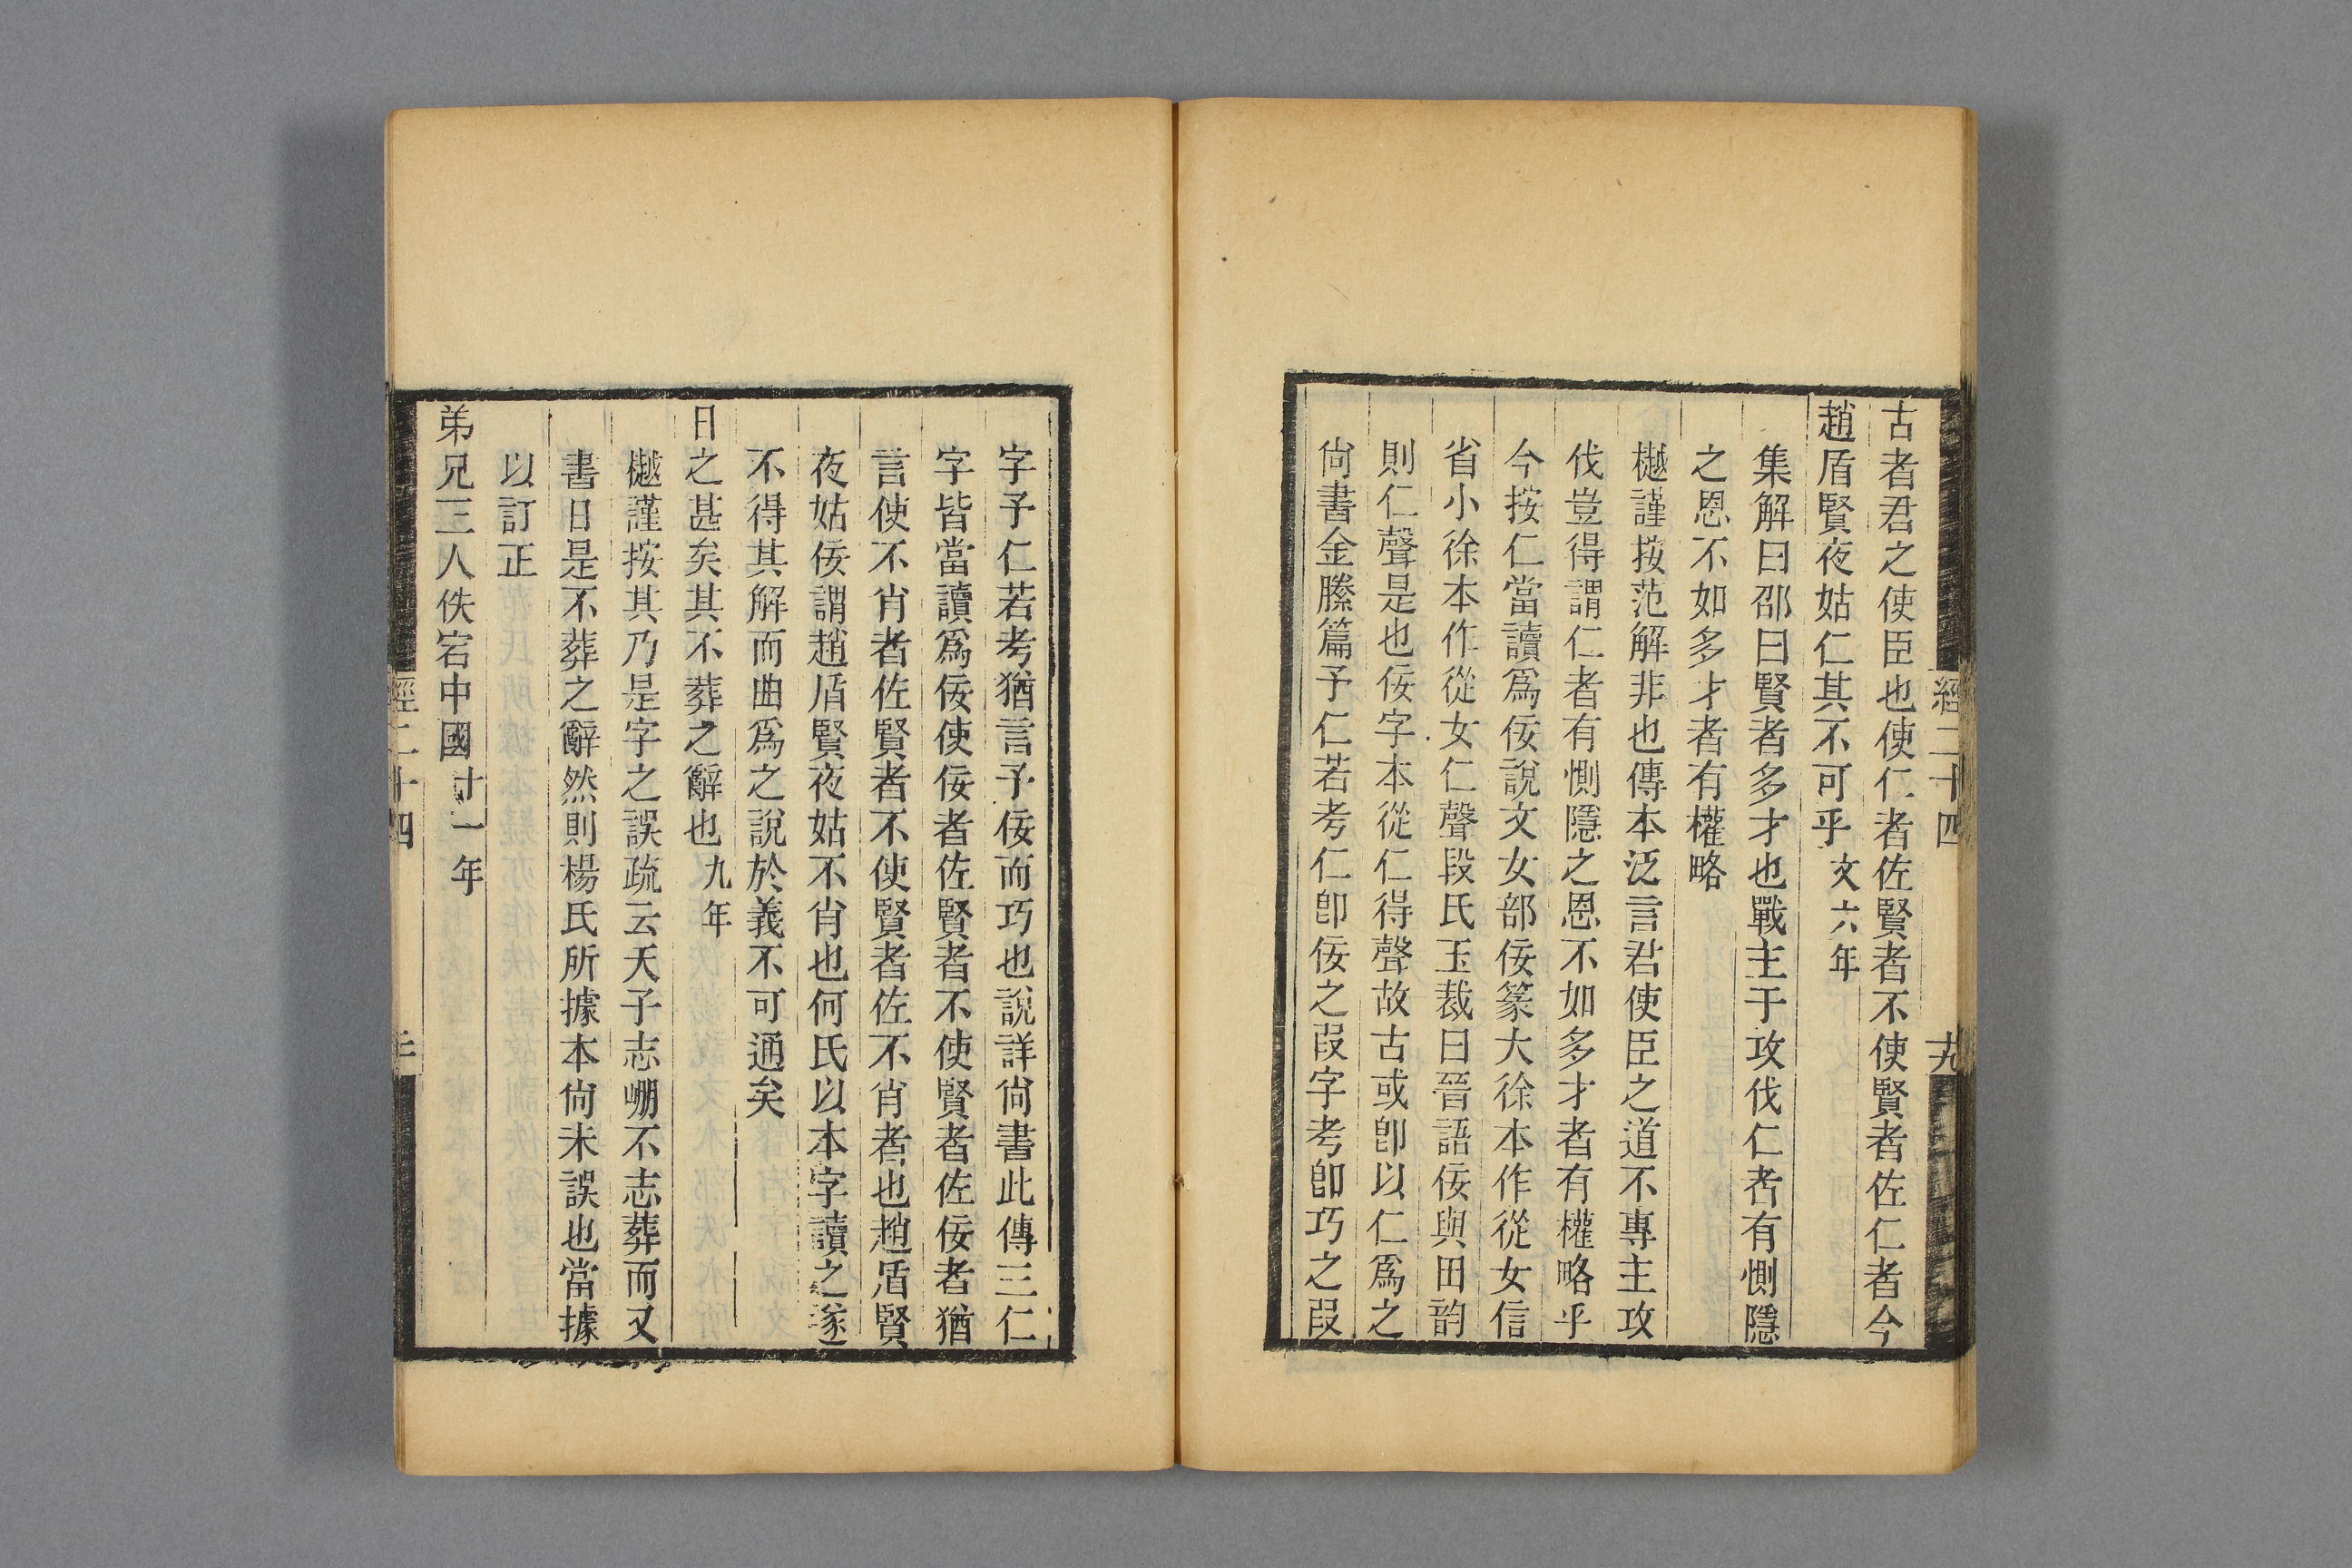 經二十四
十九
古者君之使臣也使仁者佐賢者不使賢者佐仁者今
趙盾賢夜姑仁其不可乎文六年
集解曰邵曰賢者多才也戰主于攻伐仁者有惻隱
之恩不如多才者有權略
樾謹按范解非也傳本泛言君使臣之道不專主攻
伐豈得謂仁者有惻隱之恩不如多才者有權略乎
今按仁當讀爲佞說文女部佞篆大徐本作從女信
省小徐本作從女仁聲段氏玉裁曰晉語佞與田韵
則仁聲是也佞字本從仁得聲故古或卽以仁爲之
尙書金縢篇予仁若考仁卽佞之叚字考卽巧之叚
字予仁若考猶言予佞而巧也說詳尙書此傳三仁
字皆當讀爲佞使佞者佐賢者不使賢者佐佞者猶
言使不肖者佐賢者不使賢者佐不肖者也趙盾賢
夜姑佞謂趙盾賢夜姑不肖也何氏以本字讀之遂
不得其解而曲爲之說於義不可通矣
日之甚矣其不葬之辭也九年
樾謹按其乃是字之誤疏云天子志崩不志葬而又
書日是不葬之辭然則楊氏所據本尙未誤也當據
以訂正
弟兄三人佚宕中國十一年
經二十四